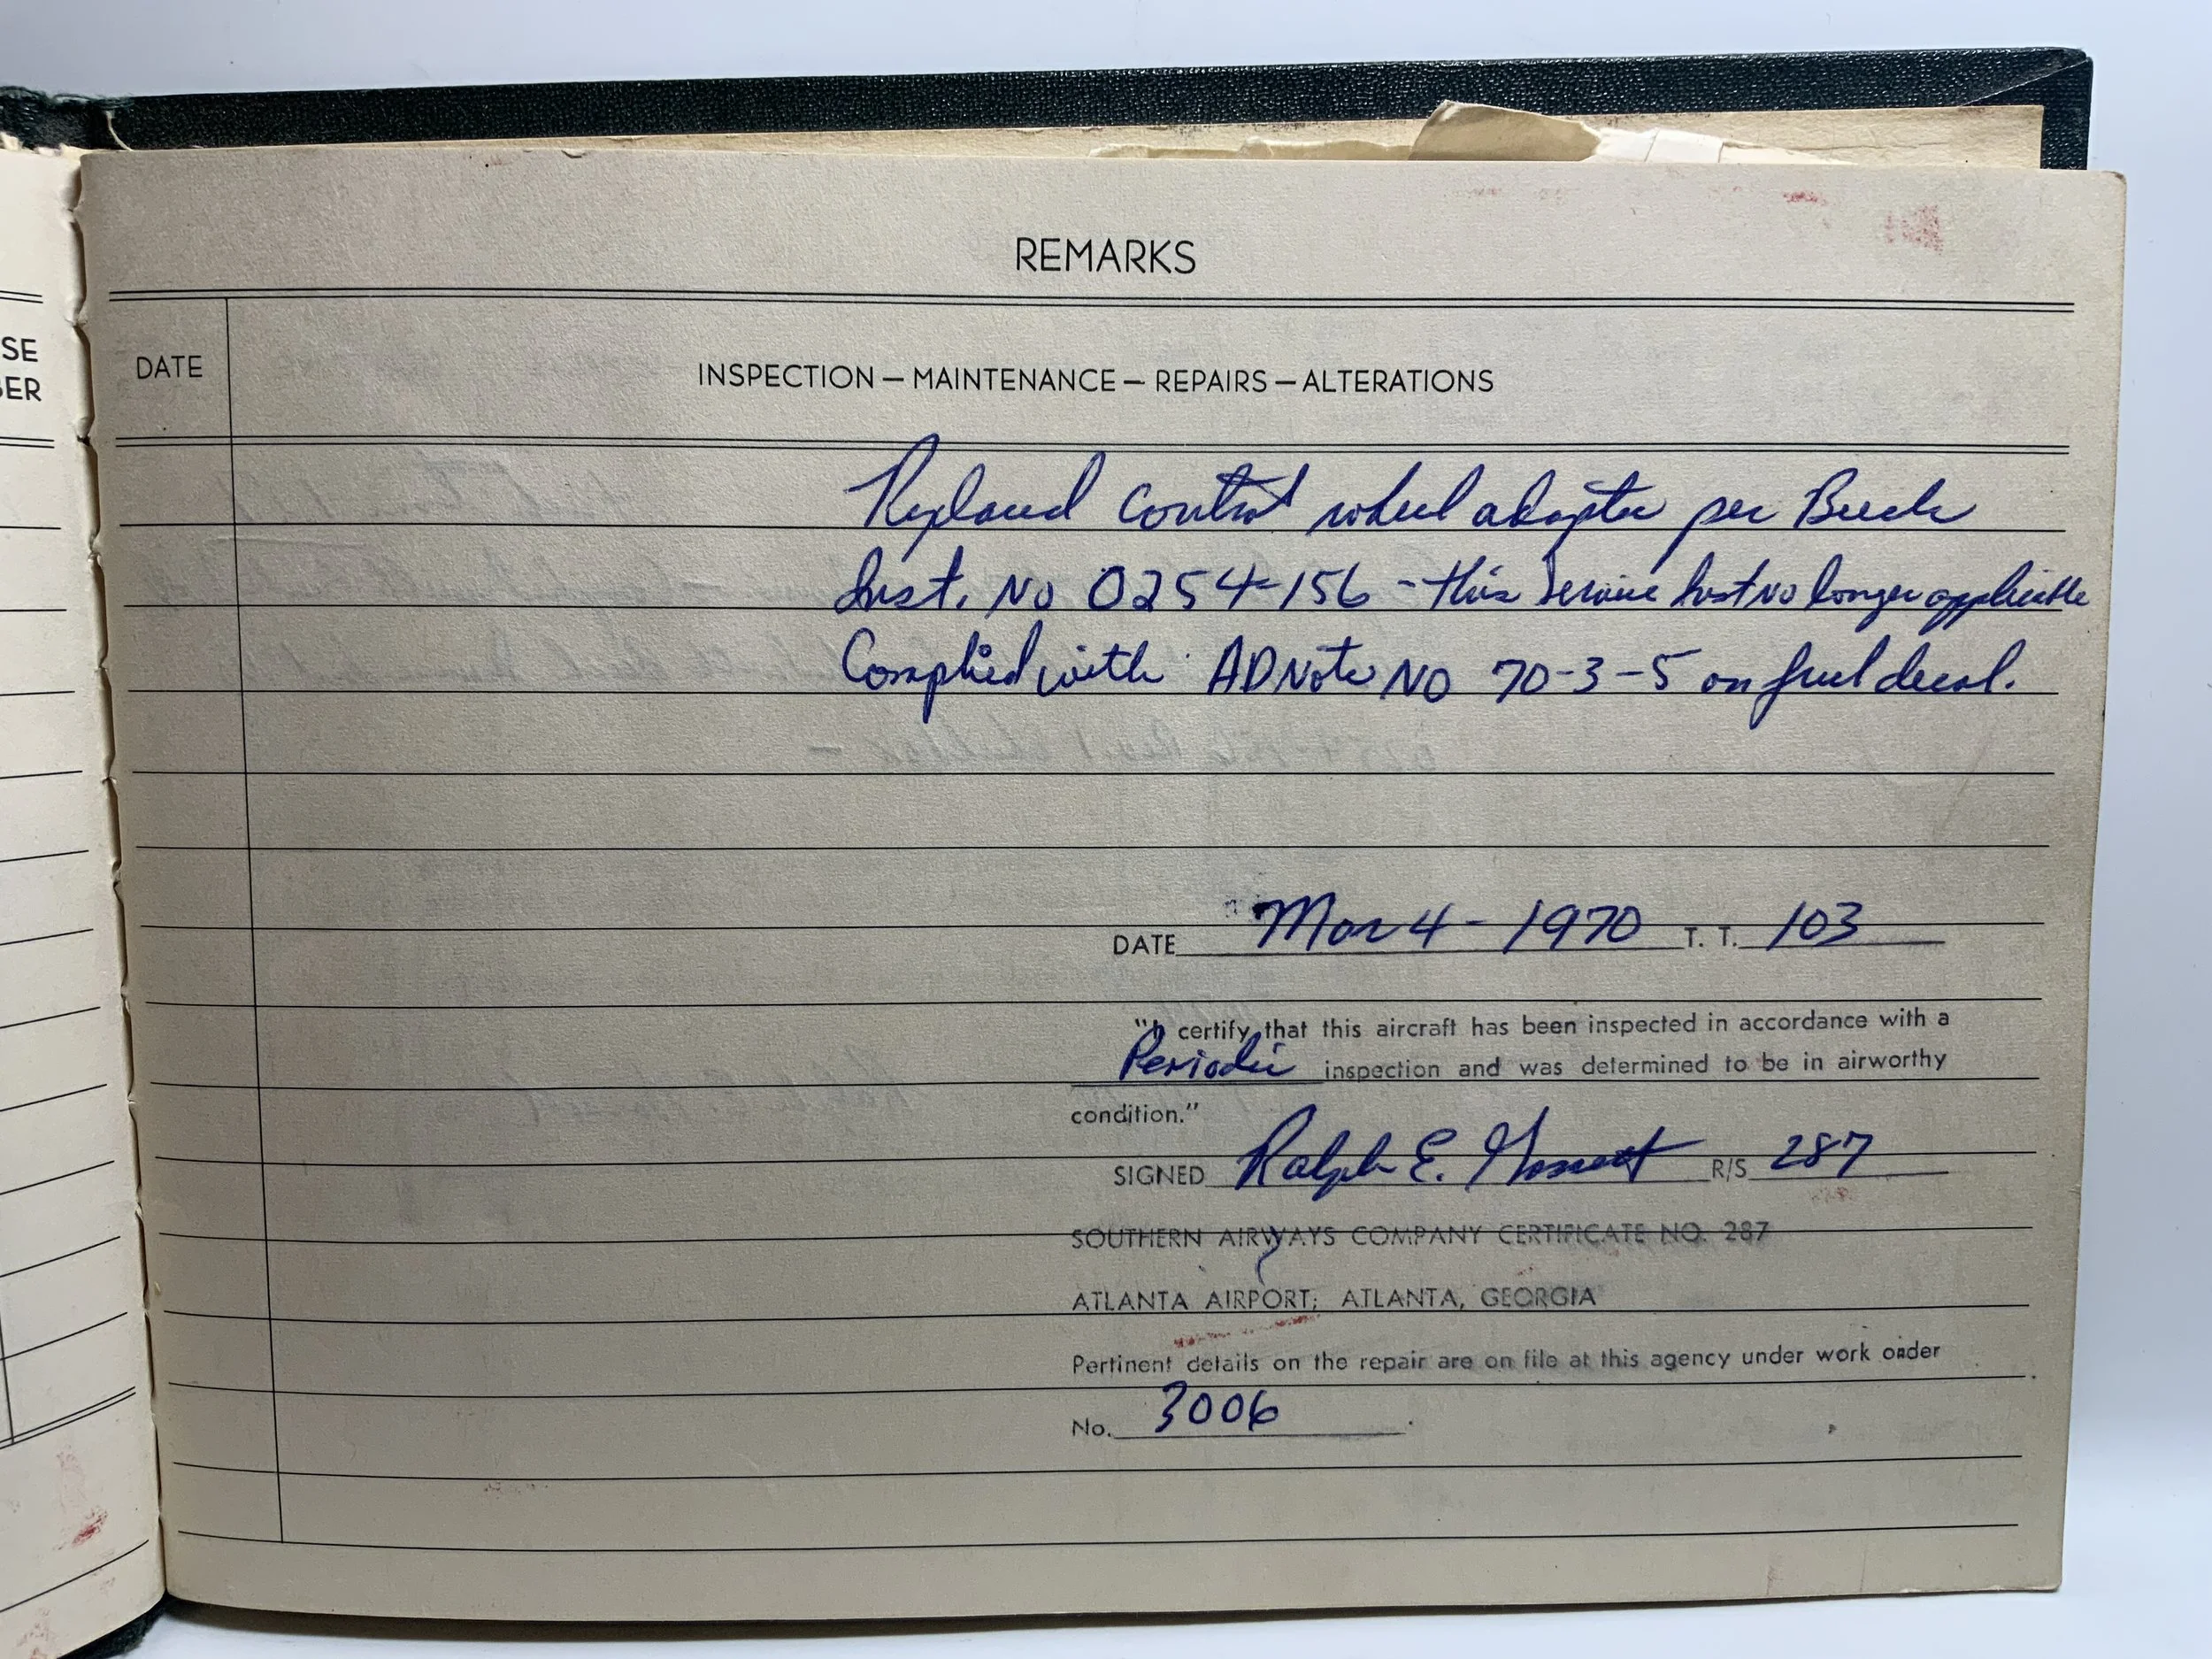 SE
BER
REMARKS
DATE
INSPECTION — MAINTENANCE — REPAIRS — ALTERATIONS
Replaced control wheel adapter per Beech
Inst. No 0254-156 - this Service Inst No longer applicable
Complied with AD Note NO 70-3-5 on fuel decal.
DATE Mar 4 - 1970 T. T. 103
"I certify that this aircraft has been inspected in accordance with a
Periodic inspection and was determined to be in airworthy
condition."
SIGNED Ralph E. R/S 287
SOUTHERN AIRWAYS COMPANY CERTIFICATE NO. 287
ATLANTA AIRPORT; ATLANTA, GEORGIA
Pertinent details on the repair are on file at this agency under work order
No. 3006